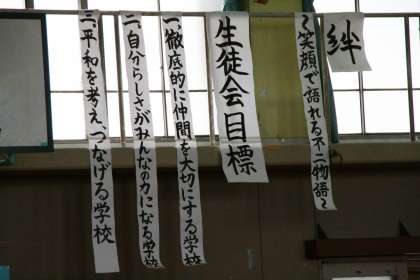 絆
～笑顔で語れる不二物語～
生徒会目標
一、徹底的に仲間を大切にする学校
二、自分らしさがみんなの力になる学校
三、平和を考え、つなげる学校